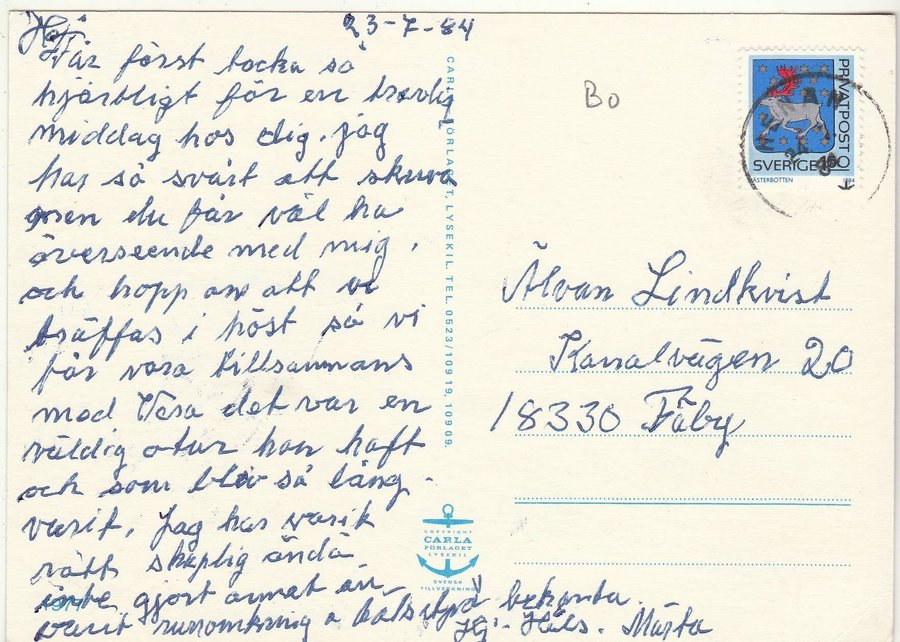 Hej 23-7-84
Får först tacka så
hjärtligt för en trevlig
middag hos dig. jag
har så svårt att skriva
men du får väl ha
överseende med mig.
och hopp as att vi
träffas i höst så vi
får vara tillsammans
med Vera det var en
väldig otur hon haft
och som blev så lång-
varit. Jag har varit
rätt skaplig ändå
inte gjort annat än
varit runomkring o hälsat på bekanta.
Hj. Häls. Märta
CARLA FÖRLAGET, LYSEKIL. TEL. 0523/109 19, 109 09.
COPYRIGHT
CARLA
FÖRLAGET
LYSEKIL
SVENSK
TILLVERKNING
Bo
PRIVATPOST
SVERIGE
VÄSTERBOTTEN 1984
Älvan Lindkvist
Kanalvägen 20
18330 Täby